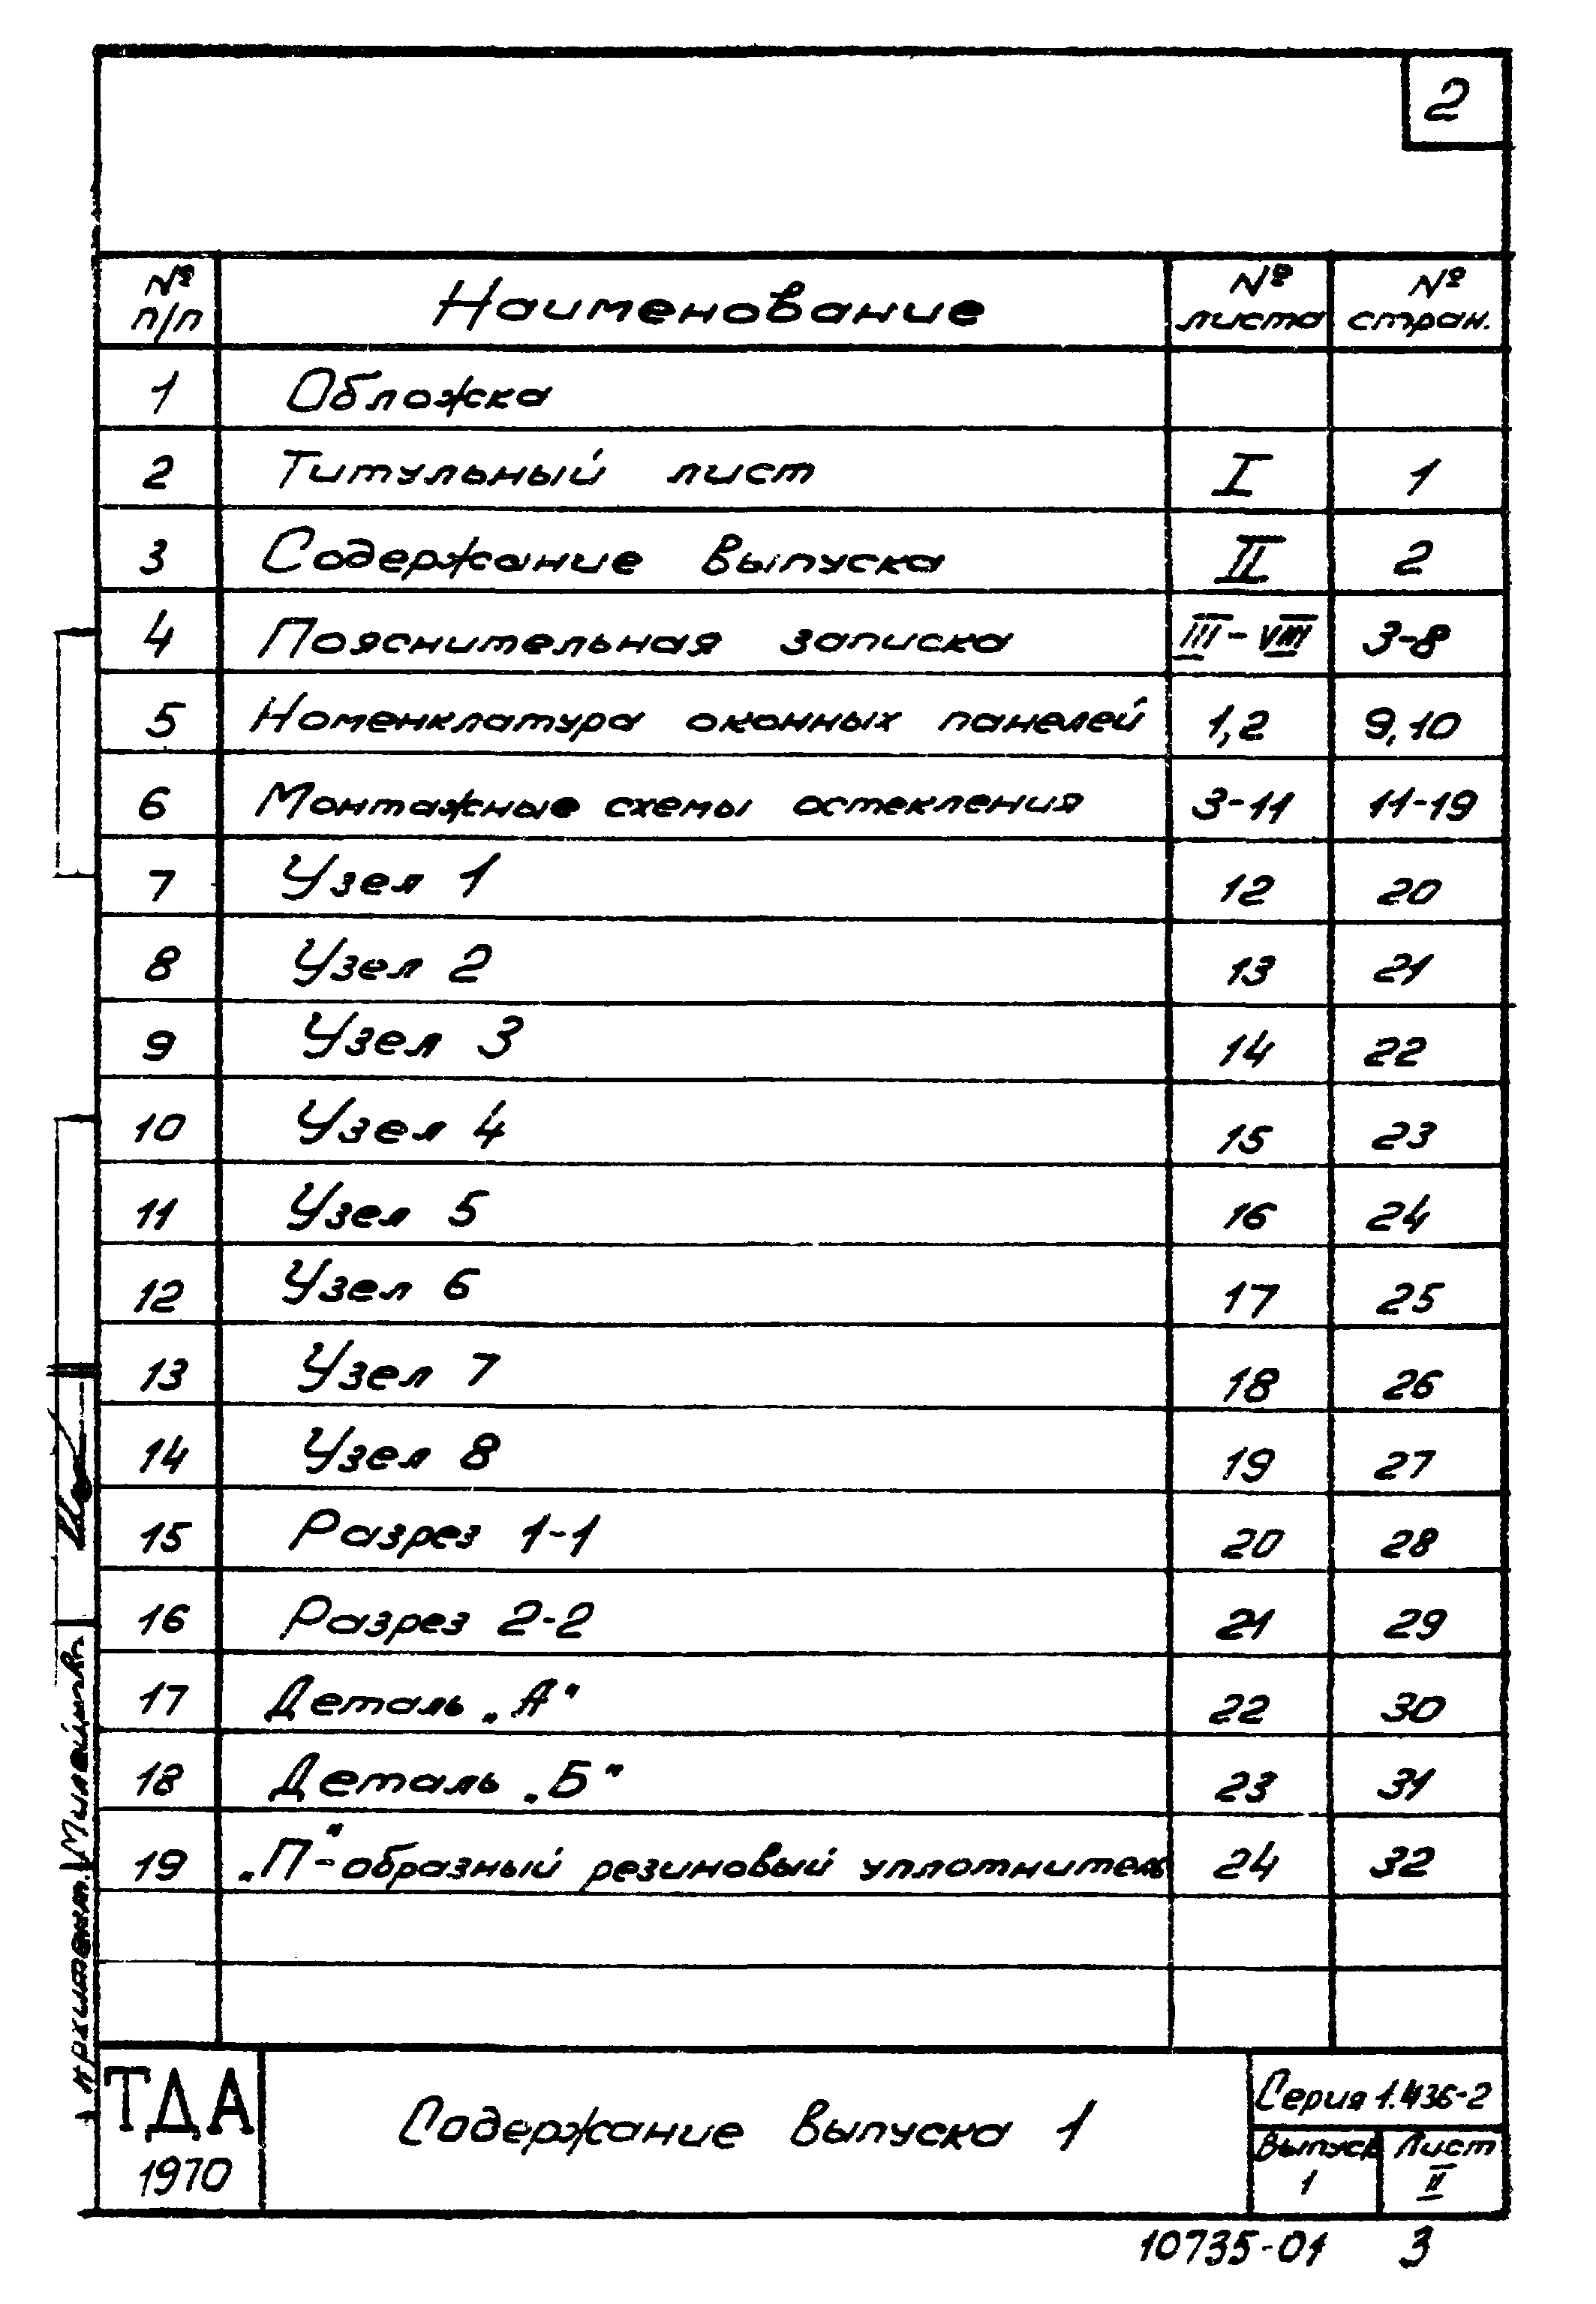 2
№ п/п Наименование № листа № стран.
1 Обложка
2 Титульный лист I 1
3 Содержание выпуска II 2
4 Пояснительная записка III-VIII 3-8
5 Номенклатура оконных панелей 1,2 9,10
6 Монтажные схемы остекления 3-11 11-19
7 Узел 1 12 20
8 Узел 2 13 21
9 Узел 3 14 22
10 Узел 4 15 23
11 Узел 5 16 24
12 Узел 6 17 25
13 Узел 7 18 26
14 Узел 8 19 27
15 Разрез 1-1 20 28
16 Разрез 2-2 21 29
17 Деталь „А" 22 30
18 Деталь „Б" 23 31
19 „П"-образный резиновый уплотнитель 24 32
ТДА
1970
Содержание выпуска 1
Серия 1.436-2
Выпуск 1
Лист II
10735-01 3